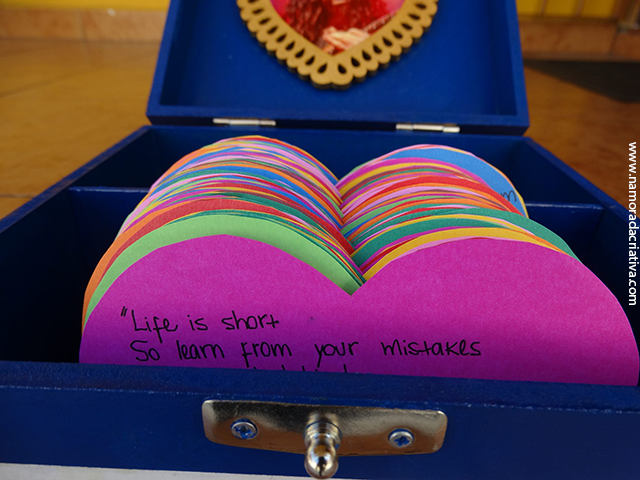 "Life is short
So learn from your mistakes
www.namoradacriativa.com